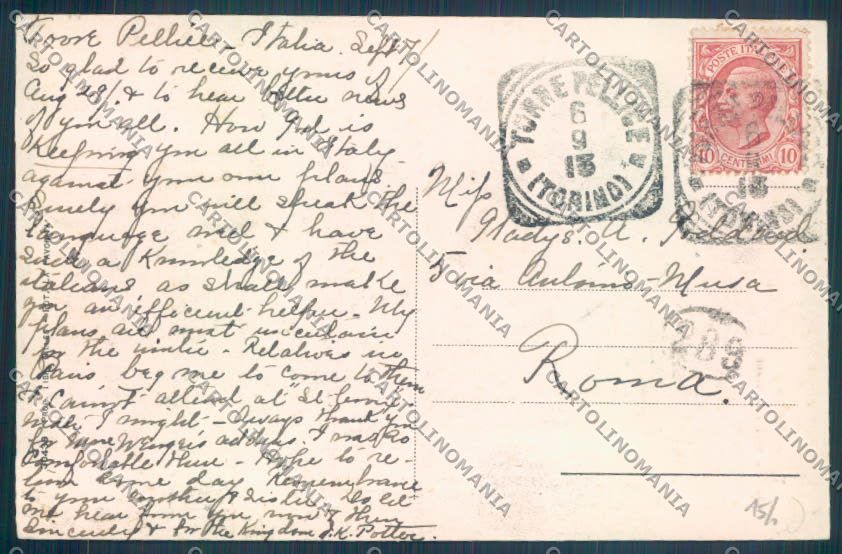 Torre Pellice - Italia. Sept 7/
So glad to receive yours of
Aug 28/. & to hear better news
of you all. How God is
Keeping you all in Italy
against your own plans
Surely you will speak the
language well & have
such a knowledge of the
italians as shall make
you an efficient helper - My
plans are most uncertain
for the winter - Relatives in
Paris beg me to come to them
& Cannot attend at
I might - Always thank you
for address. I was so
Comfortable there - Hope to re-
turn some day. Remembrance
to your mother & sister. Do let
me hear from you now & then
Sincerely & for the Kingdom J.K. Potter.
TORRE PELLICE
6
9
13
(TORINO)
POSTE ITALIANE
10 CENTESIMI 10
13
(TORINO)
Miss
Gladys. A.
5 via Antonio-Musa
Roma.
289
15/
CARTOLINOMANIA